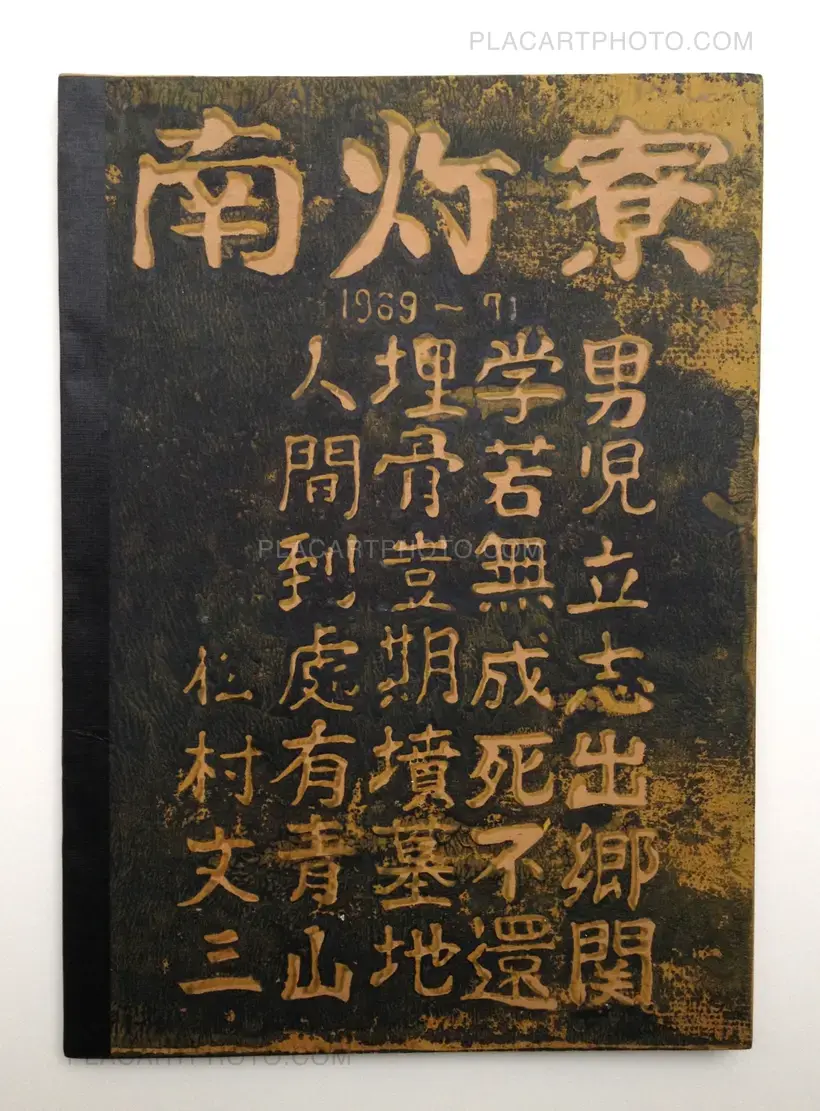 PLACARTPHOTO.COM
南灯寮
1969-71
男児立志出郷関
学若無成死不還
埋骨豈期墳墓地
人間到處有青山
村文三
PLACARTPHOTO.COM
PLACARTPHOTO.COM